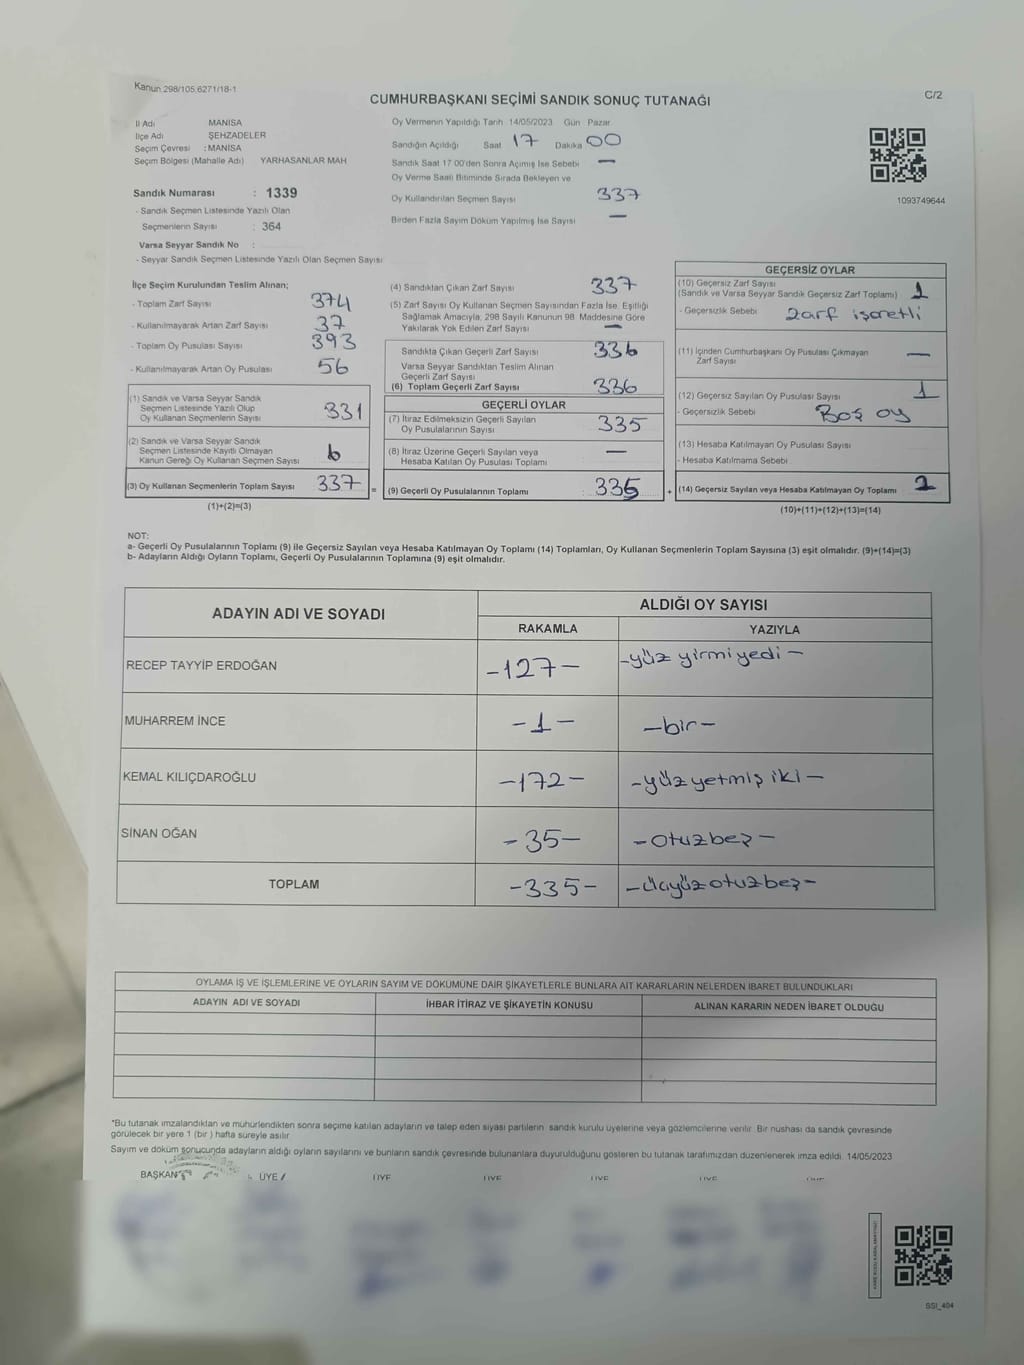 Kanun 298/105,6271/18-1
CUMHURBAŞKANI SEÇİMİ SANDIK SONUÇ TUTANAĞI
C/2
İl Adı MANİSA
İlçe Adı ŞEHZADELER
Seçim Çevresi : MANİSA
Seçim Bölgesi (Mahalle Adı) YARHASANLAR MAH
Sandık Numarası : 1339
- Sandık Seçmen Listesinde Yazılı Olan
Seçmenlerin Sayısı : 364
Varsa Seyyar Sandık No :
- Seyyar Sandık Seçmen Listesinde Yazılı Olan Seçmen Sayısı
Oy Vermenin Yapıldığı Tarih 14/05/2023 Gün Pazar
Sandığın Açıldığı Saat 17 Dakika 00
Sandık Saat 17 00'den Sonra Açılmış İse Sebebi —
Oy Verme Saati Bitiminde Sırada Bekleyen ve
Oy Kullandırılan Seçmen Sayısı 337
Birden Fazla Sayım Döküm Yapılmış İse Sayısı —
1093749644
İlçe Seçim Kurulundan Teslim Alınan;
- Toplam Zarf Sayısı 374
- Kullanılmayarak Artan Zarf Sayısı 37
- Toplam Oy Pusulası Sayısı 393
- Kullanılmayarak Artan Oy Pusulası 56
(1) Sandık ve Varsa Seyyar Sandık
Seçmen Listesinde Yazılı Olup
Oy Kullanan Seçmenlerin Sayısı 331
(2) Sandık ve Varsa Seyyar Sandık
Seçmen Listesinde Kayıtlı Olmayan
Kanun Gereği Oy Kullanan Seçmen Sayısı 6
(3) Oy Kullanan Seçmenlerin Toplam Sayısı 337 =
(1)+(2)=(3)
(4) Sandıktan Çıkan Zarf Sayısı 337
(5) Zarf Sayısı Oy Kullanan Seçmen Sayısından Fazla İse, Eşitliği
Sağlamak Amacıyla, 298 Sayılı Kanunun 98 Maddesine Göre
Yakılarak Yok Edilen Zarf Sayısı —
Sandıkta Çıkan Geçerli Zarf Sayısı 336
Varsa Seyyar Sandıktan Teslim Alınan
Geçerli Zarf Sayısı
(6) Toplam Geçerli Zarf Sayısı 336
GEÇERLİ OYLAR
(7) İtiraz Edilmeksizin Geçerli Sayılan
Oy Pusulalarının Sayısı 335
(8) İtiraz Üzerine Geçerli Sayılan veya
Hesaba Katılan Oy Pusulası Toplamı —
(9) Geçerli Oy Pusulalarının Toplamı 335 +
GEÇERSİZ OYLAR
(10) Geçersiz Zarf Sayısı
(Sandık ve Varsa Seyyar Sandık Geçersiz Zarf Toplamı) 1
- Geçersizlik Sebebi zarf işaretli
(11) İçinden Cumhurbaşkanı Oy Pusulası Çıkmayan
Zarf Sayısı —
(12) Geçersiz Sayılan Oy Pusulası Sayısı 1
- Geçersizlik Sebebi Boş oy
(13) Hesaba Katılmayan Oy Pusulası Sayısı
- Hesaba Katılmama Sebebi
(14) Geçersiz Sayılan veya Hesaba Katılmayan Oy Toplamı 2
(10)+(11)+(12)+(13)=(14)
NOT:
a- Geçerli Oy Pusulalarının Toplamı (9) ile Geçersiz Sayılan veya Hesaba Katılmayan Oy Toplamı (14) Toplamları, Oy Kullanan Seçmenlerin Toplam Sayısına (3) eşit olmalıdır. (9)+(14)=(3)
b- Adayların Aldığı Oyların Toplamı, Geçerli Oy Pusulalarının Toplamına (9) eşit olmalıdır.
ADAYIN ADI VE SOYADI
ALDIĞI OY SAYISI
RAKAMLA YAZIYLA
RECEP TAYYİP ERDOĞAN -127- -yüz yirmi yedi-
MUHARREM İNCE -1- -bir-
KEMAL KILIÇDAROĞLU -172- -yüz yetmiş iki-
SİNAN OĞAN -35- -otuzbeş-
TOPLAM -335- -üçyüzotuzbeş-
OYLAMA İŞ VE İŞLEMLERİNE VE OYLARIN SAYIM VE DÖKÜMÜNE DAİR ŞİKAYETLERLE BUNLARA AİT KARARLARIN NELERDEN İBARET BULUNDUKLARI
ADAYIN ADI VE SOYADI İHBAR İTİRAZ VE ŞİKAYETİN KONUSU ALINAN KARARIN NEDEN İBARET OLDUĞU
*Bu tutanak imzalandıktan ve mühürlendikten sonra seçime katılan adayların ve talep eden siyasi partilerin sandık kurulu üyelerine veya gözlemcilerine verilir. Bir nüshası da sandık çevresinde
görülecek bir yere 1 (bir) hafta süreyle asılır
Sayım ve döküm sonucunda adayların aldığı oyların sayılarını ve bunların sandık çevresinde bulunanlara duyurulduğunu gösteren bu tutanak tarafımızdan düzenlenerek imza edildi. 14/05/2023
BAŞKAN ÜYE ÜYE ÜYE ÜYE ÜYE
SSI_404